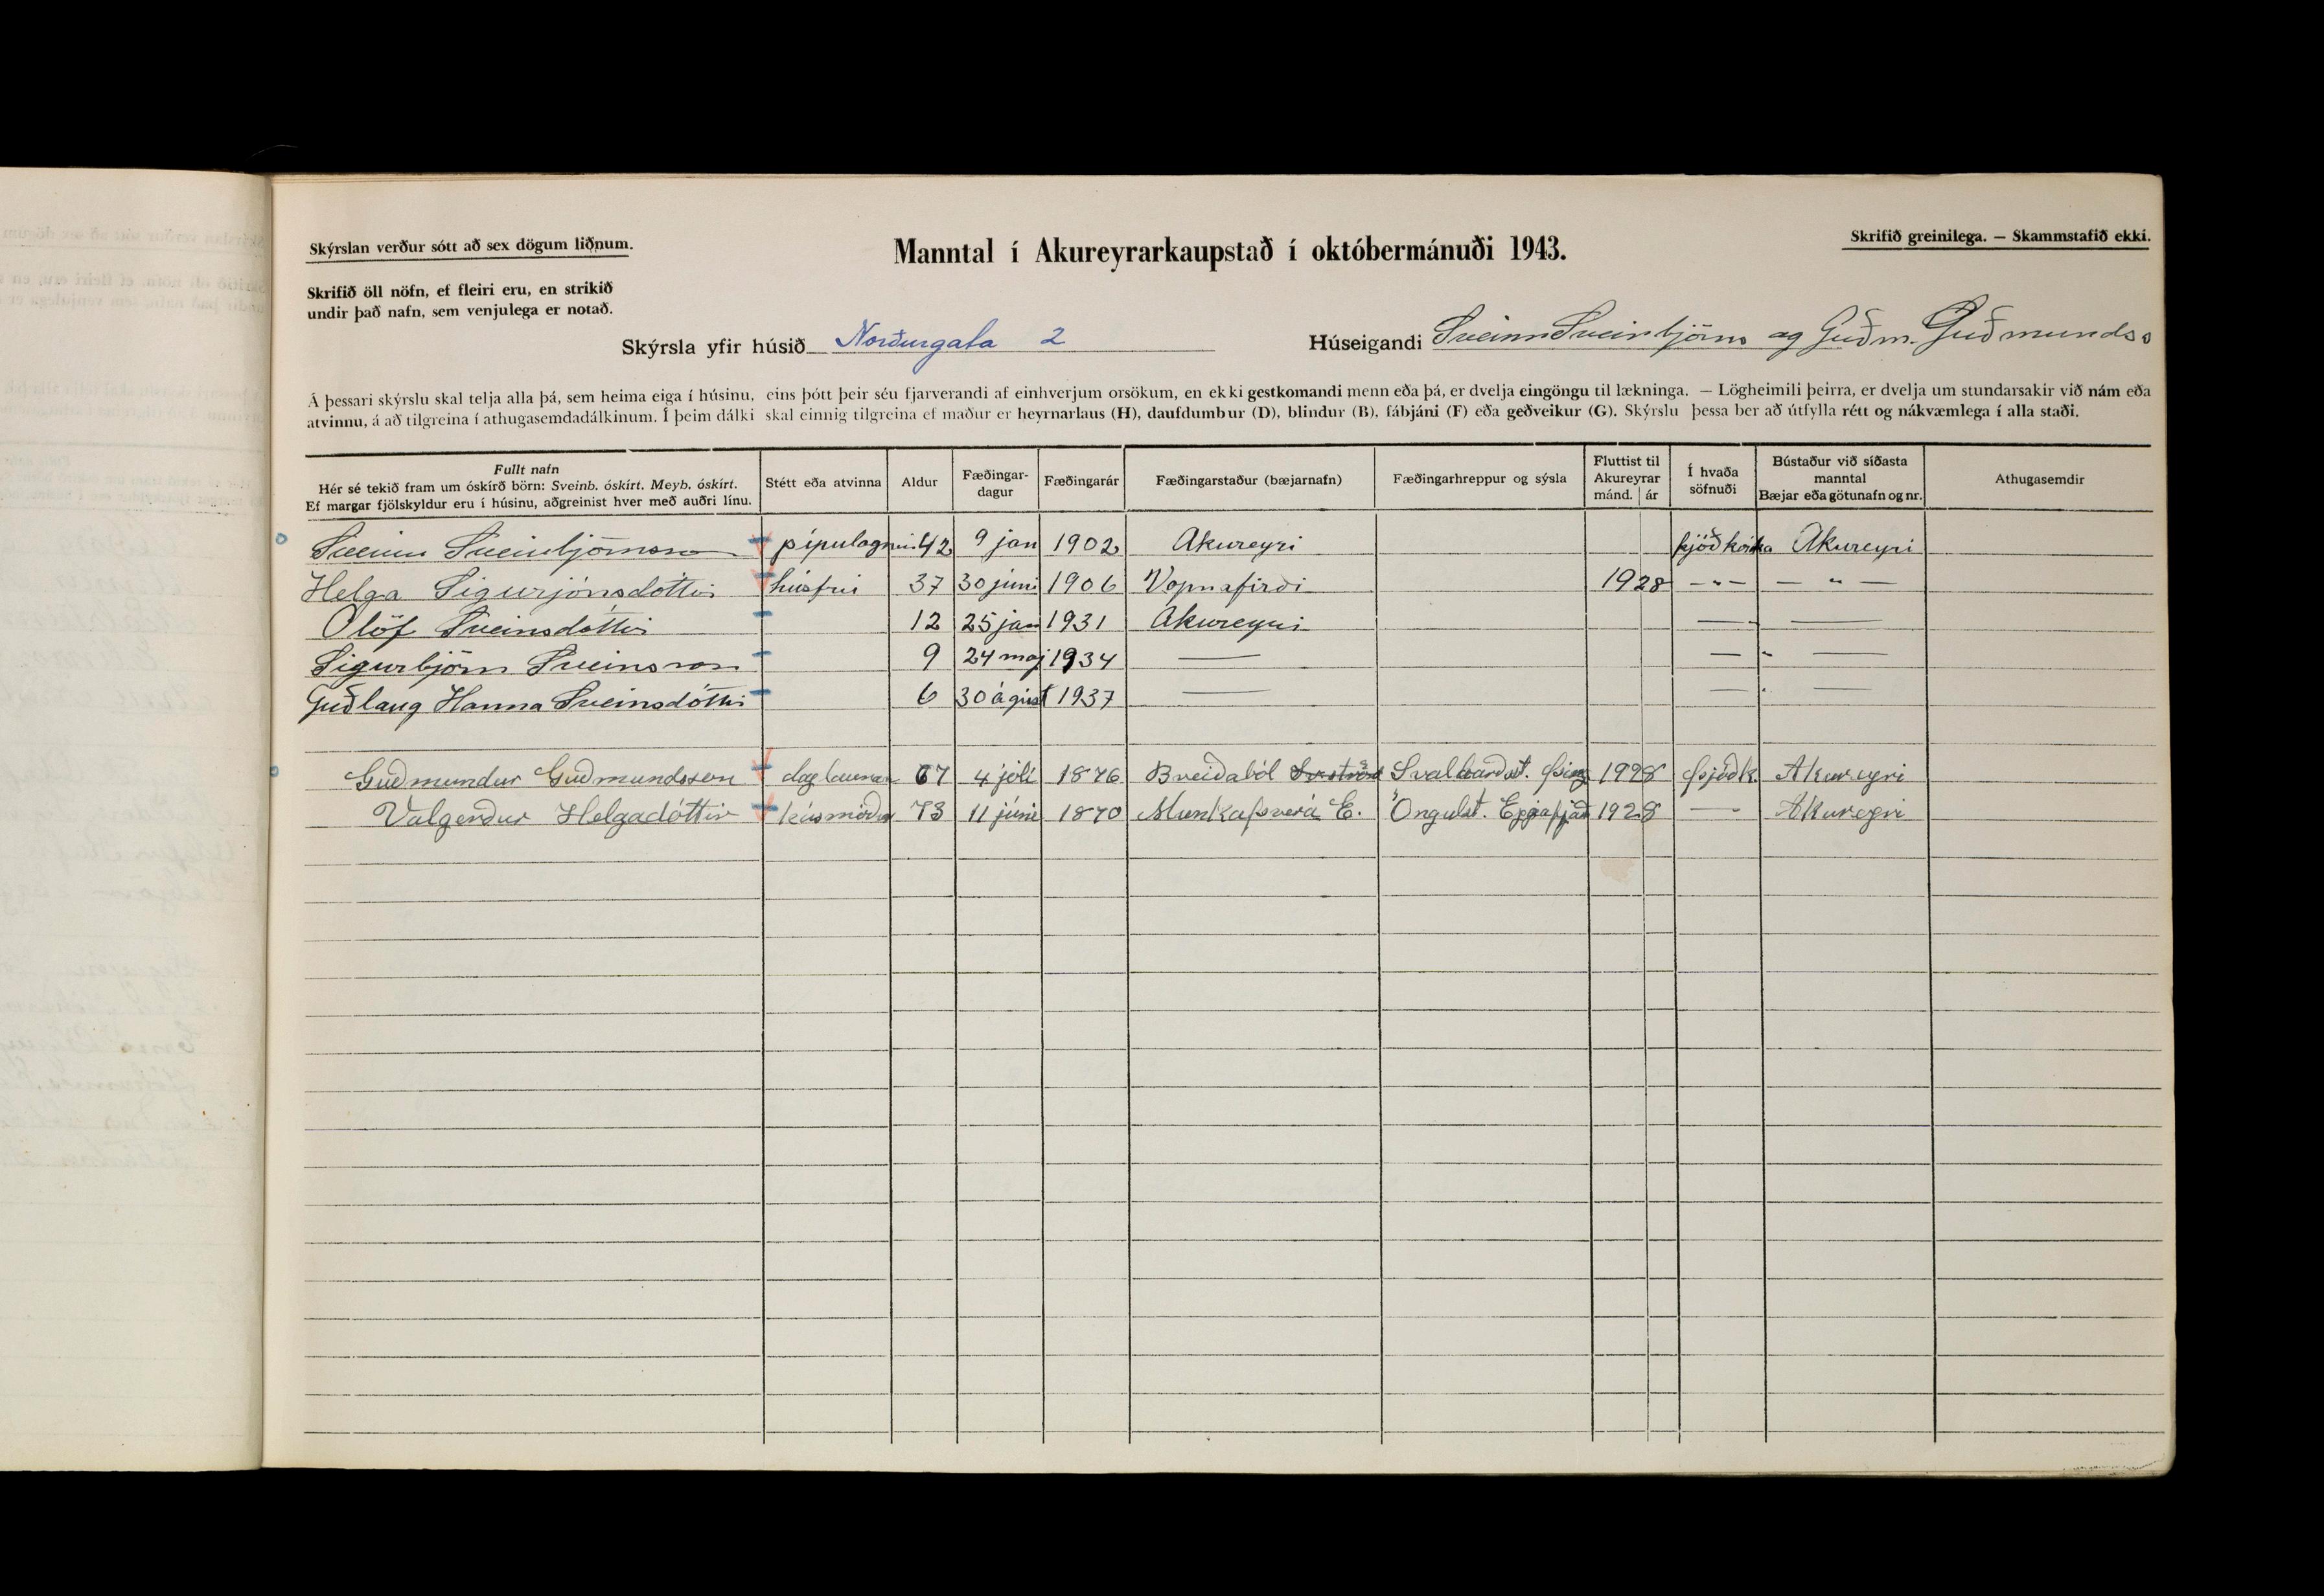 Skýrslan verður sótt að sex dögum liðnum.
Manntal í Akureyrarkaupstað í októbermánuði 1943.
Skrifið greinilega. — Skammstafið ekki.
Skrifið öll nöfn, ef fleiri eru, en strikið
undir það nafn, sem venjulega er notað.
Skýrsla yfir húsið Norðurgata 2 Húseigandi Sveinn Sveinbjörns og Guðm. Guðmunds
Á þessari skýrslu skal telja alla þá, sem heima eiga í húsinu, eins þótt þeir séu fjarverandi af einhverjum orsökum, en ekki gestkomandi menn eða þá, er dvelja eingöngu til lækninga. — Lögheimili þeirra, er dvelja um stundarsakir við nám eða
atvinnu, á að tilgreina í athugasemdadálkinum. Í þeim dálki skal einnig tilgreina ef maður er heyrnarlaus (H), daufdumbur (D), blindur (B), fábjáni (F) eða geðveikur (G). Skýrslu þessa ber að útfylla rétt og nákvæmlega í alla staði.
Fullt nafn
Hér sé tekið fram um óskírð börn: Sveinb. óskírt. Meyb. óskírt.
Ef margar fjölskyldur eru í húsinu, aðgreinist hver með auðri línu.
Stétt eða atvinna
Aldur
Fæðingar-
dagur
Fæðingarár
Fæðingarstaður (bæjarnafn)
Fæðingarhreppur og sýsla
Fluttist til
Akureyrar
mánd. | ár
Í hvaða
söfnuði
Bústaður við síðasta
manntal
Bæjar eða götunafn og nr.
Athugasemdir
Sveinn Sveinbjörnsson 42 9 jan 1902 Akureyri þjóðkirkja Akureyri
Helga Sigurjónsdóttir húsfrú 37 30 júni 1906 Vopnafirði 1928 — " — — " —
Ólöf Sveinsdóttir 12 25 jan 1931 Akureyri — —
Sigurbjörn Sveinsson 9 24 maj 1934 — — " —
Guðlaug Hanna Sveinsdóttir 6 30 águst 1937 — — " —
Guðmundur Guðmundsson daglauna 67 4 júlí 1876 Breiðaból Svalbarðst. Þing 1928 Þjóðk. Akureyri
Valgerður Helgadóttir húsmóðir 73 11 júní 1870 Munkaþverá E. Öngulst. Eyjafjað 1928 — Akureyri